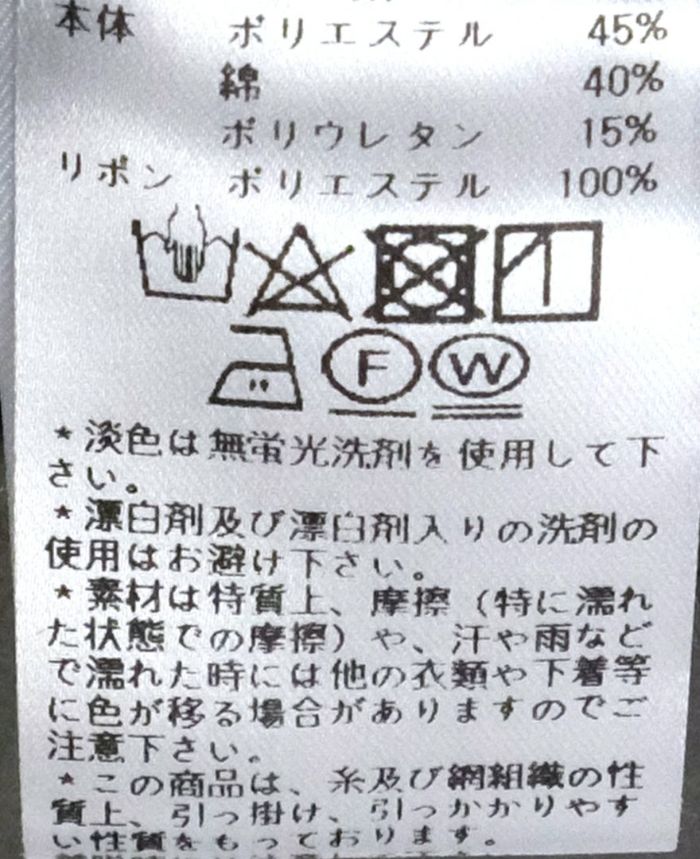 本体 ポリエステル 45%
綿 40%
ポリウレタン 15%
リボン ポリエステル 100%
F W
*淡色は無蛍光洗剤を使用して下
さい。
*漂白剤及び漂白剤入りの洗剤の
使用はお避け下さい。
*素材は特質上、摩擦(特に濡れ
た状態での摩擦)や、汗や雨など
で濡れた時には他の衣類や下着等
に色が移る場合がありますのでご
注意下さい。
*この商品は、糸及び網組織の性
質上、引っ掛け、引っかかりやす
い性質をもっております。